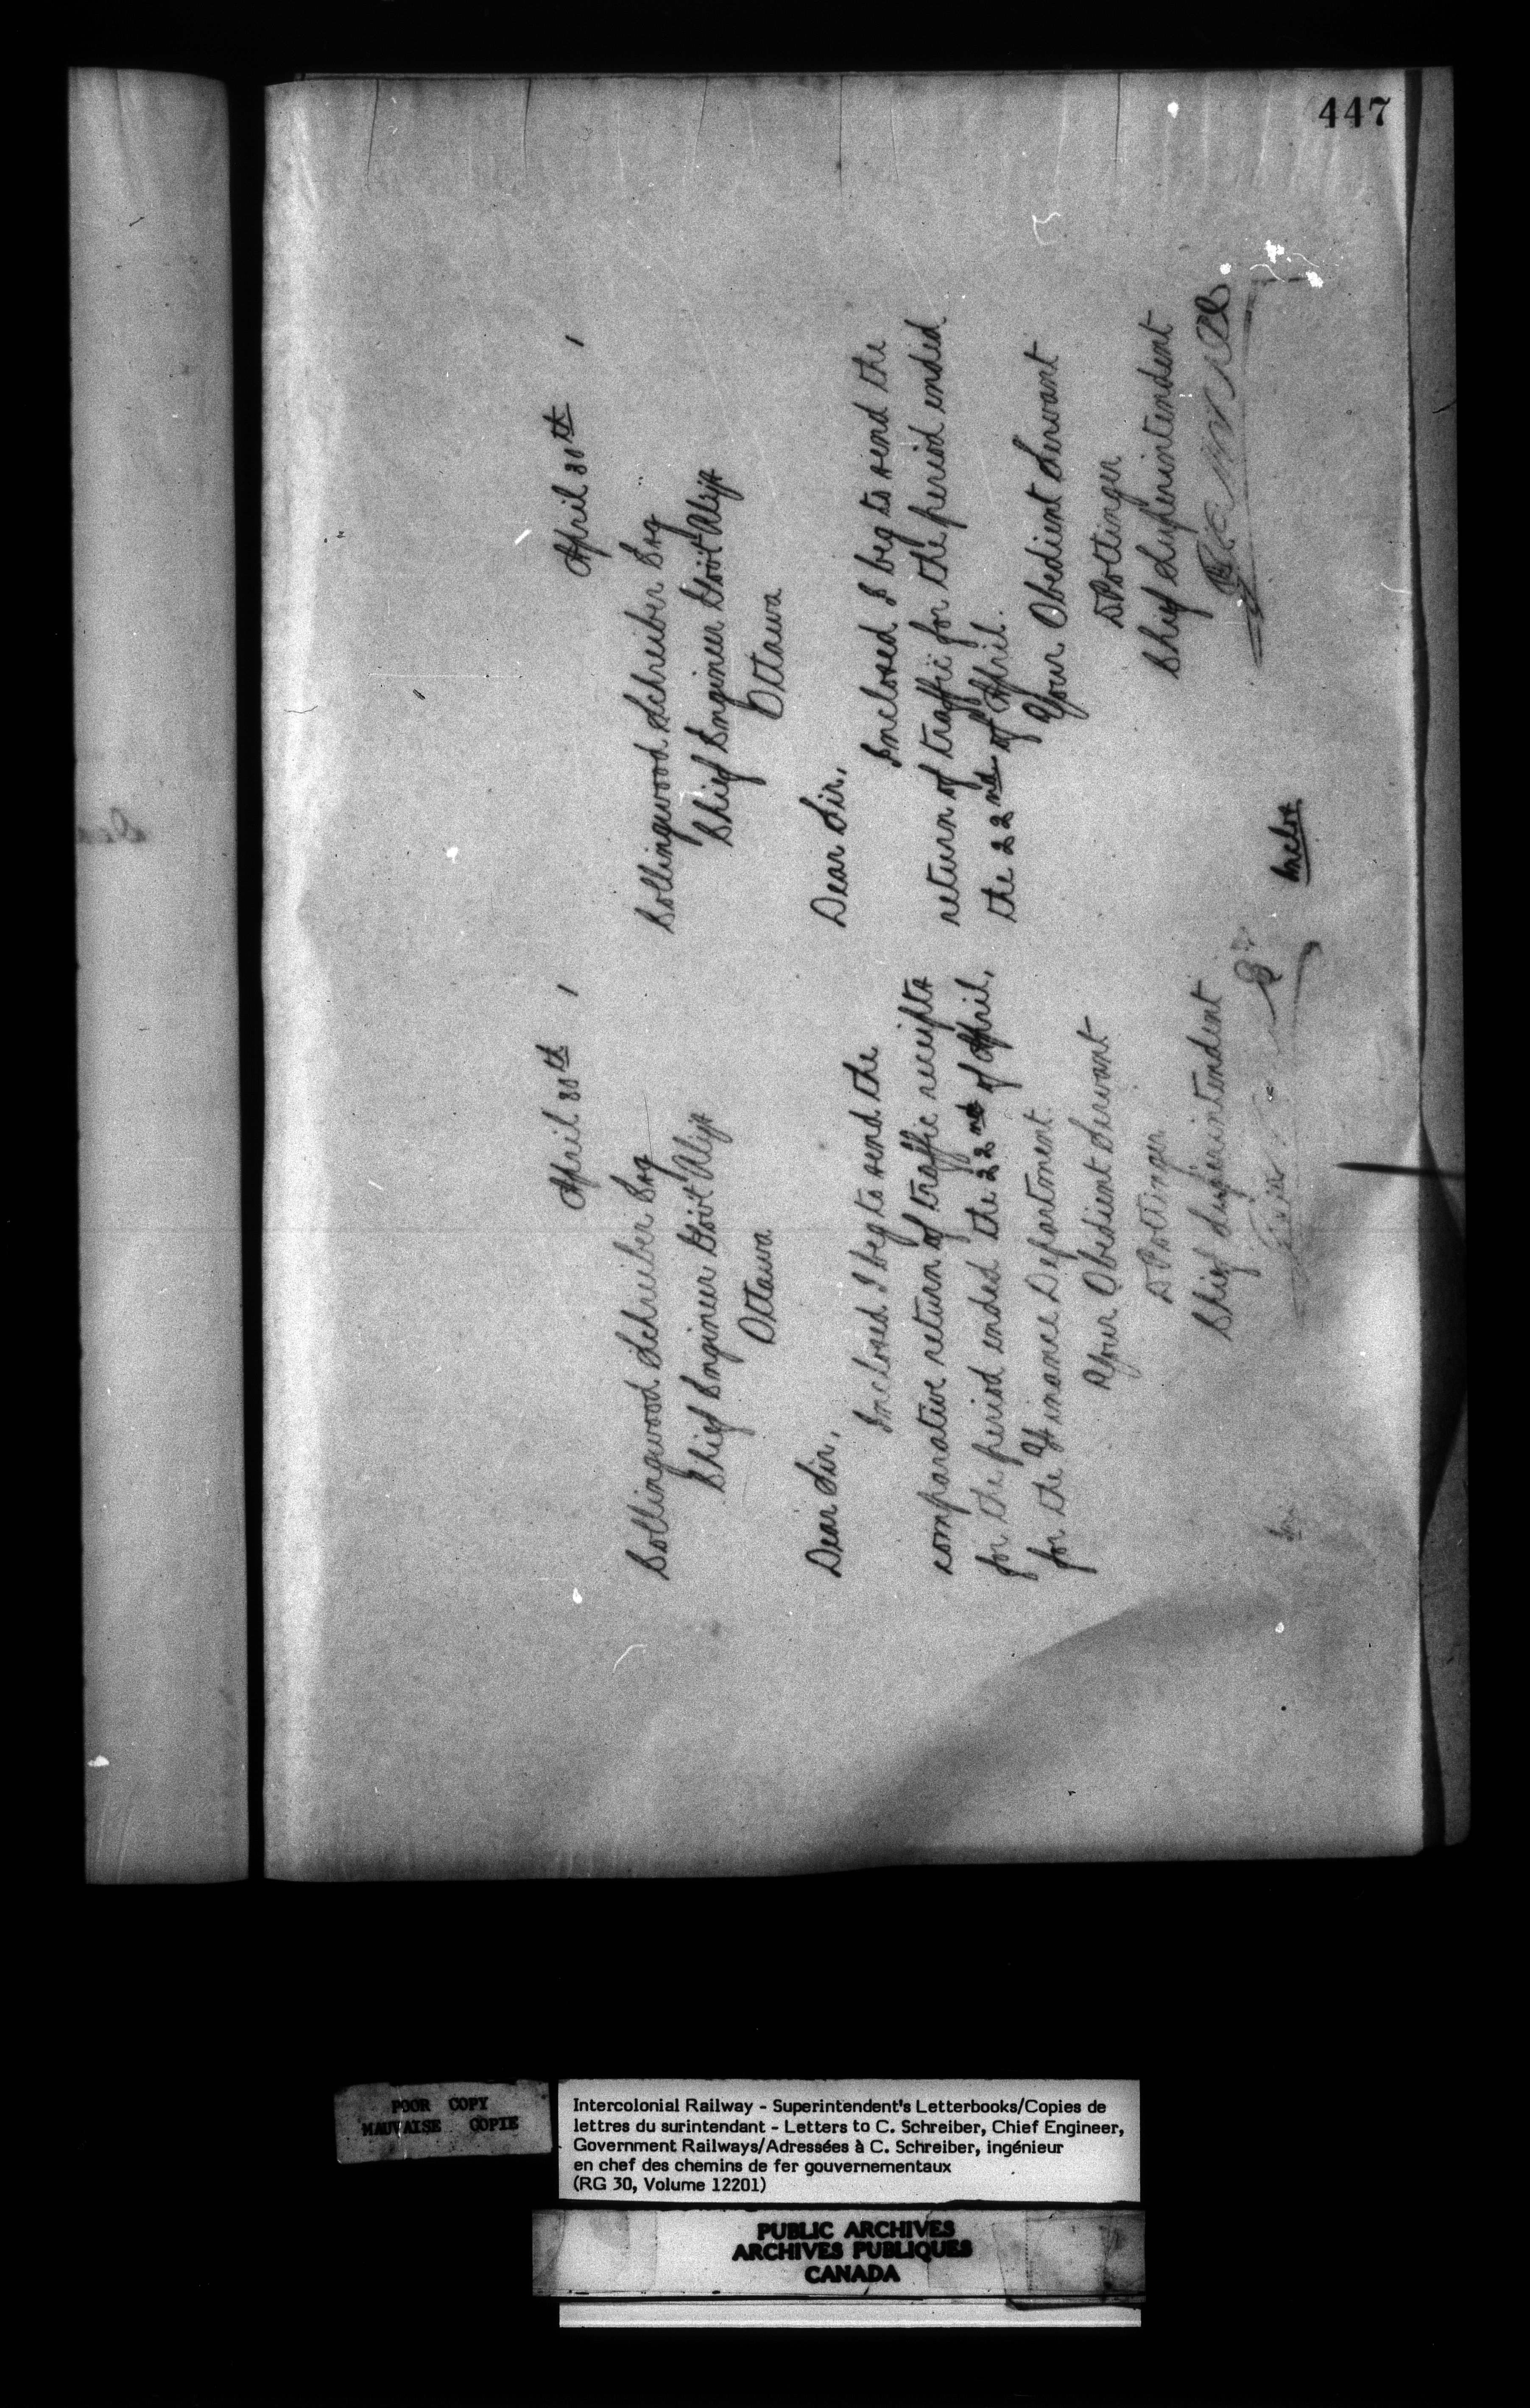 447
April 30th 1
Collingwood Schreiber Esq
Chief Engineer Govt Rlys
Ottawa
Dear Sir,
Inclosed I beg to send the
comparative return of traffic receipts
for the period ended the 22nd of April,
for the Finance Department.
Your Obedient Servant
D Pottinger
Chief Superintendent
April 30th 1
Collingwood Schreiber Esq
Chief Engineer Govt Rlys
Ottawa
Dear Sir,
Inclosed I beg to send the
return of traffic for the period ended
the 22nd of April.
Your Obedient Servant
D Pottinger
Chief Superintendent
Inclos
POOR COPY
MAUVAISE COPIE
Intercolonial Railway - Superintendent's Letterbooks/Copies de
lettres du surintendant - Letters to C. Schreiber, Chief Engineer,
Government Railways/Adressées à C. Schreiber, ingénieur
en chef des chemins de fer gouvernementaux
(RG 30, Volume 12201)
PUBLIC ARCHIVES
ARCHIVES PUBLIQUES
CANADA